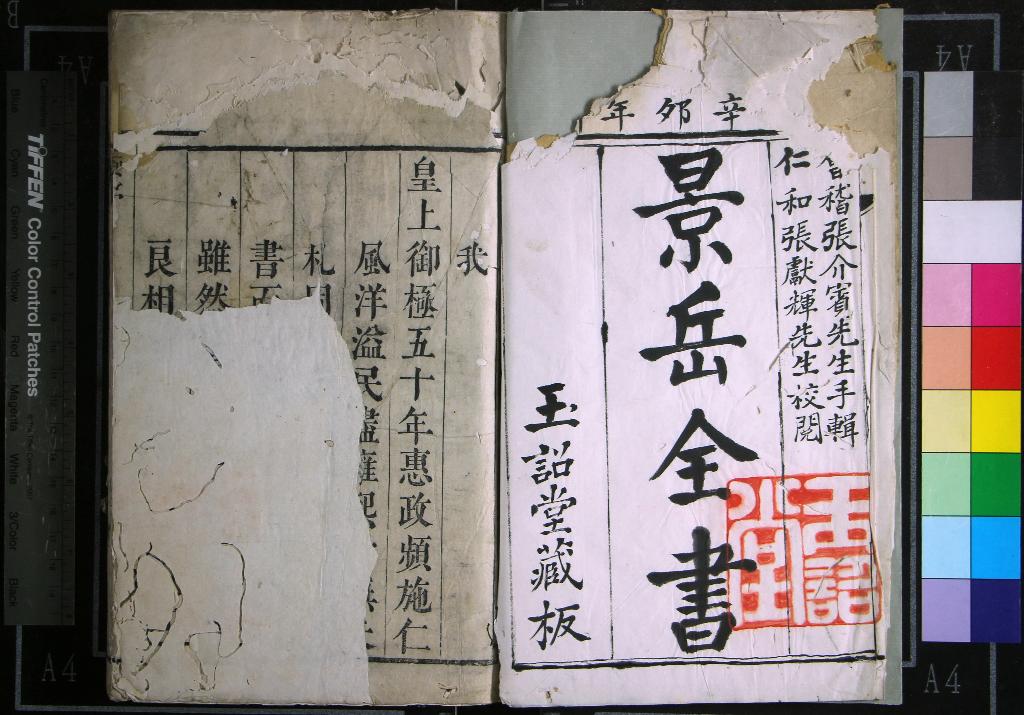 辛夘年
會稽張介賓先生手輯
仁和張獻輝先生校閱
景岳全書
玉詔堂藏板
玉詔堂
我
皇上御極五十年惠政頻施仁
風洋溢民盡雍熙
札
書
雖然
良相
TIFFEN Color Control Patches
Blue Cyan Green Yellow Red Magenta White 3/Color Black
A4
A4
A4
A4